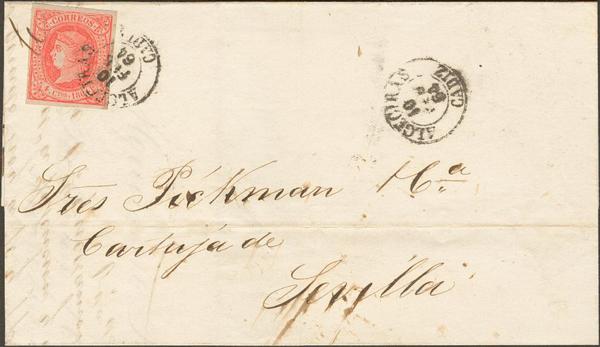 CORREOS
4 CUOS 1864
ALGECIRAS
CADIZ
10
64
ALGECIRAS
CADIZ
10
64
Sres Pickman y Ca
Cartuja de
Sevilla